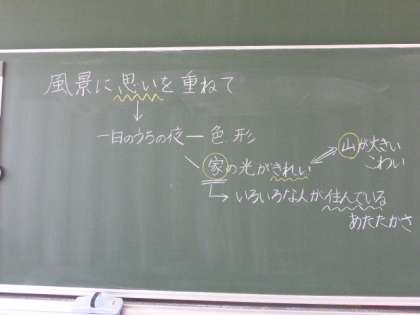 風景に思いを重ねて
一日のうちの夜 ― 色 形
家の光がきれい
山が大きい
こわい
いろいろな人が住んでいる
あたたかさ